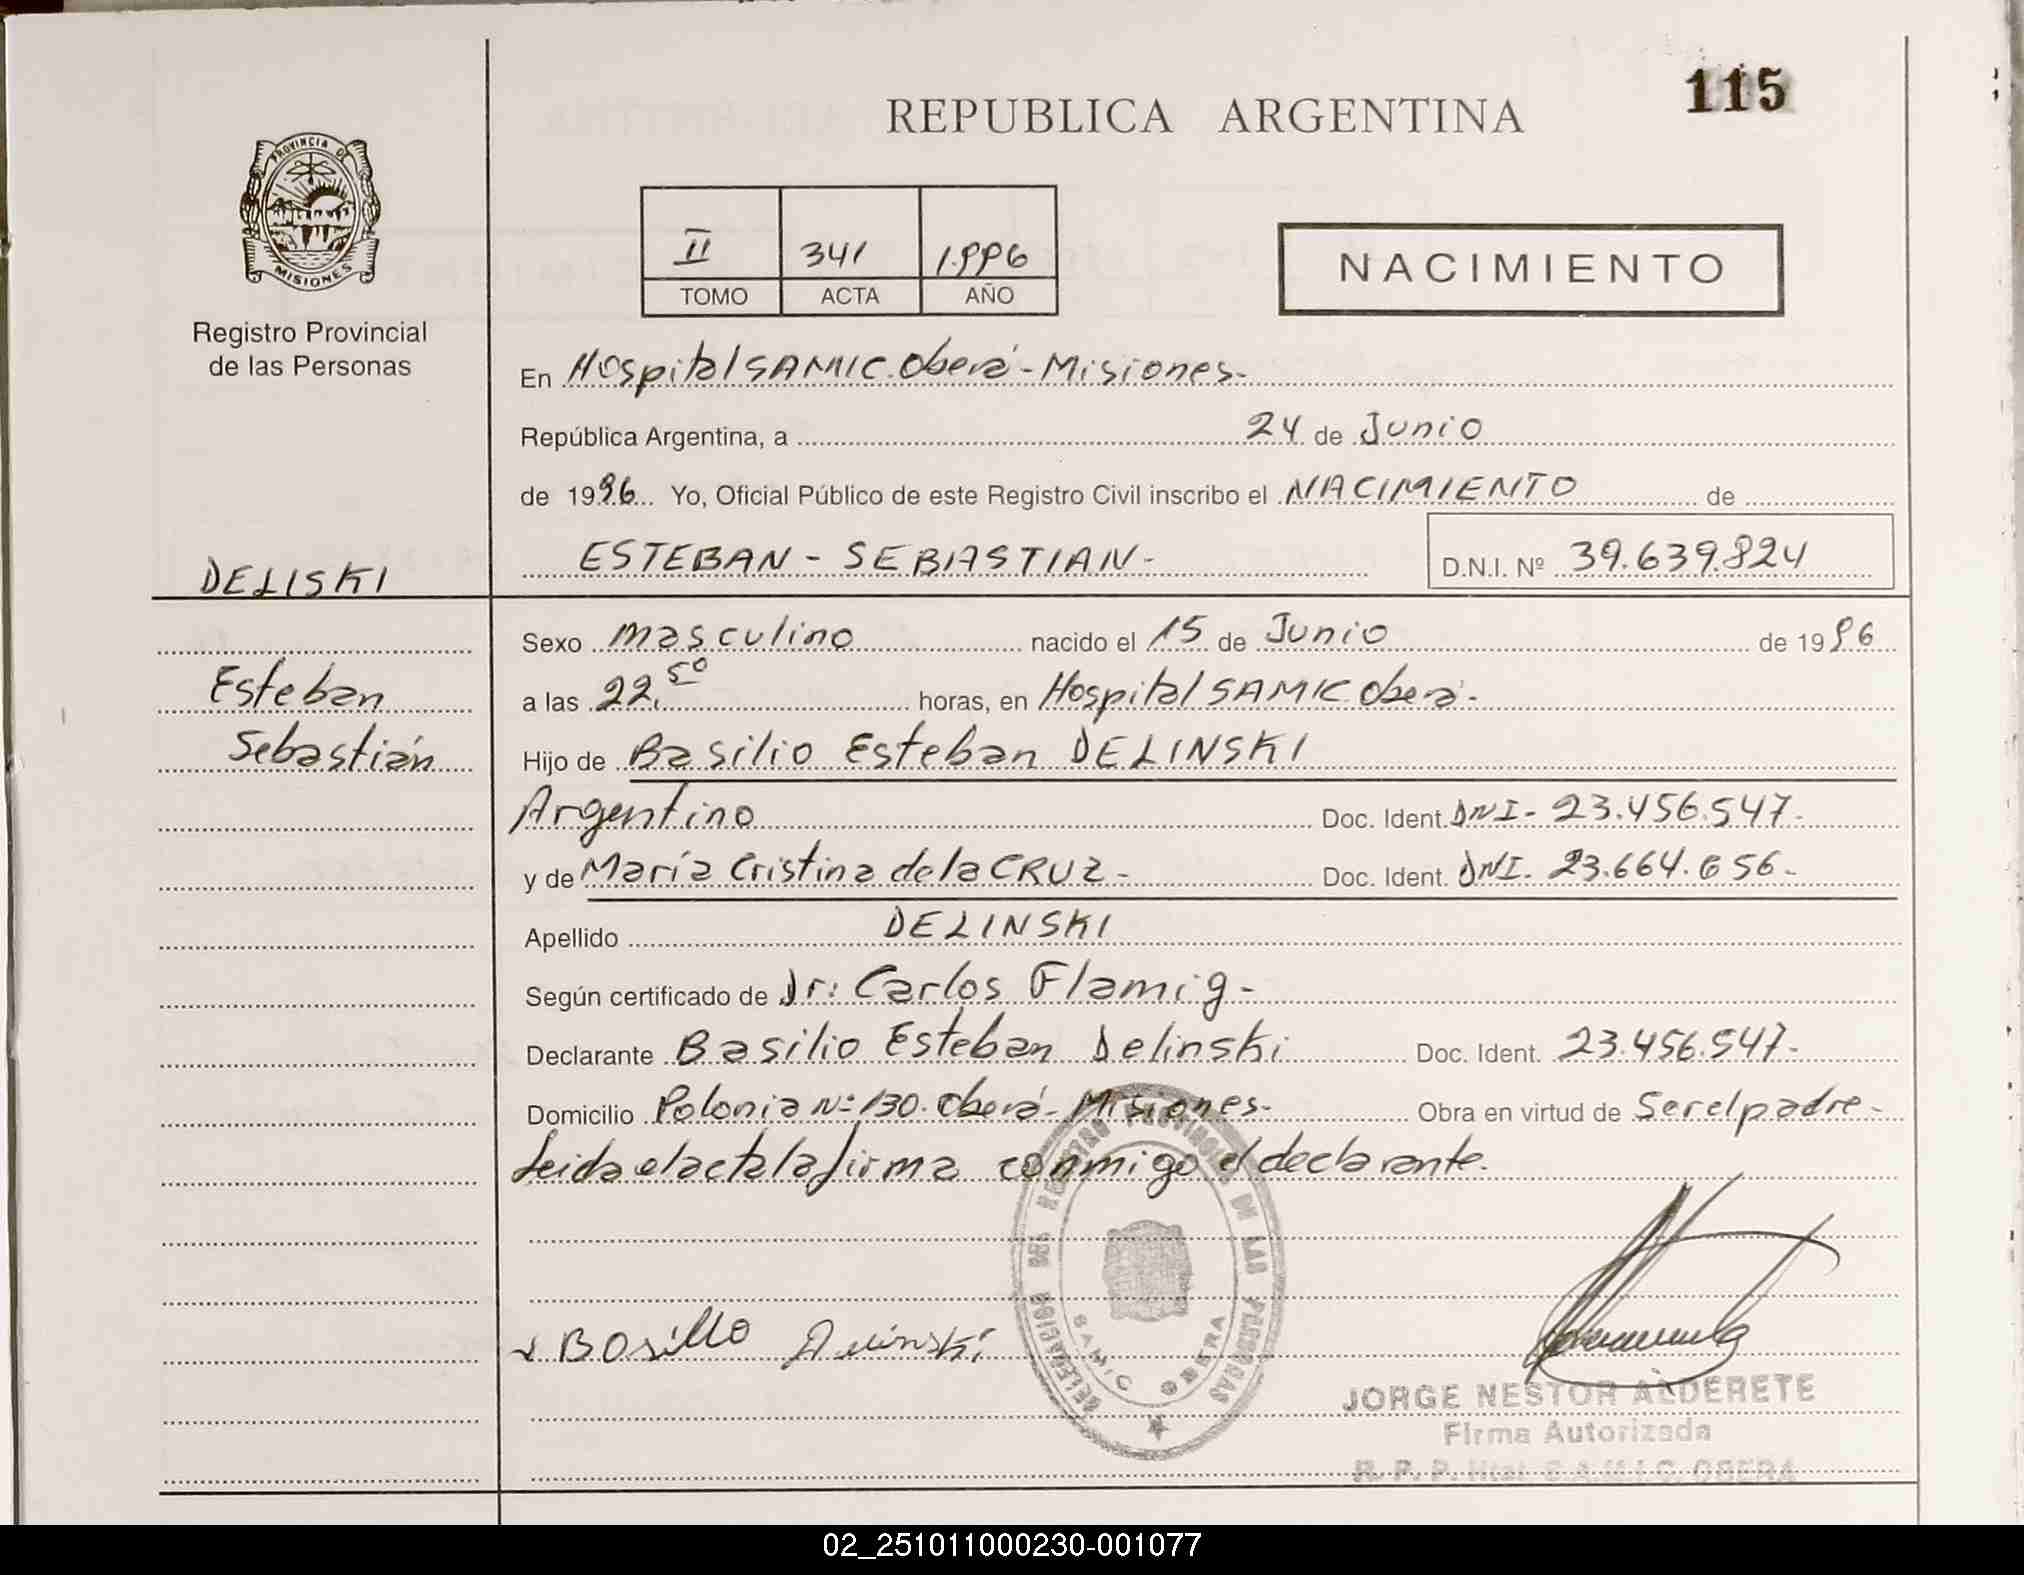 115
REPUBLICA ARGENTINA
PROVINCIA DE
MISIONES
Registro Provincial
de las Personas
II 341 1.996
TOMO ACTA AÑO
NACIMIENTO
En Hospital SAMIC. Oberá - Misiones.
República Argentina, a 24 de Junio
de 1996 Yo, Oficial Público de este Registro Civil inscribo el NACIMIENTO de
DELISKI
ESTEBAN - SEBASTIAN - D.N.I. Nº 39.639.824
Sexo masculino nacido el 15 de Junio de 1996
Esteban
a las 22.50 horas, en Hospital SAMIC. Oberá -
Sebastián
Hijo de Basilio Esteban DELINSKI
Argentino Doc. Ident. DNI - 23.456.547 -
y de María Cristina de la CRUZ - Doc. Ident. DNI. 23.664.656 -
Apellido DELINSKI
Según certificado de Dr: Carlos Flamig -
Declarante Basilio Esteban Delinski Doc. Ident. 23.456.547 -
Domicilio Polonia Nº 130. Oberá - Misiones - Obra en virtud de Ser el padre -
Leida el acta la firma conmigo el declarante.
DELEGACION DEL REGISTRO PROVINCIAL DE LAS PERSONAS
SAMIC OBERA
Basilio Delinski
JORGE NESTOR ALDERETE
Firma Autorizada
R. P. P. Htal. S.A.M.I.C. OBERA
02_251011000230-001077